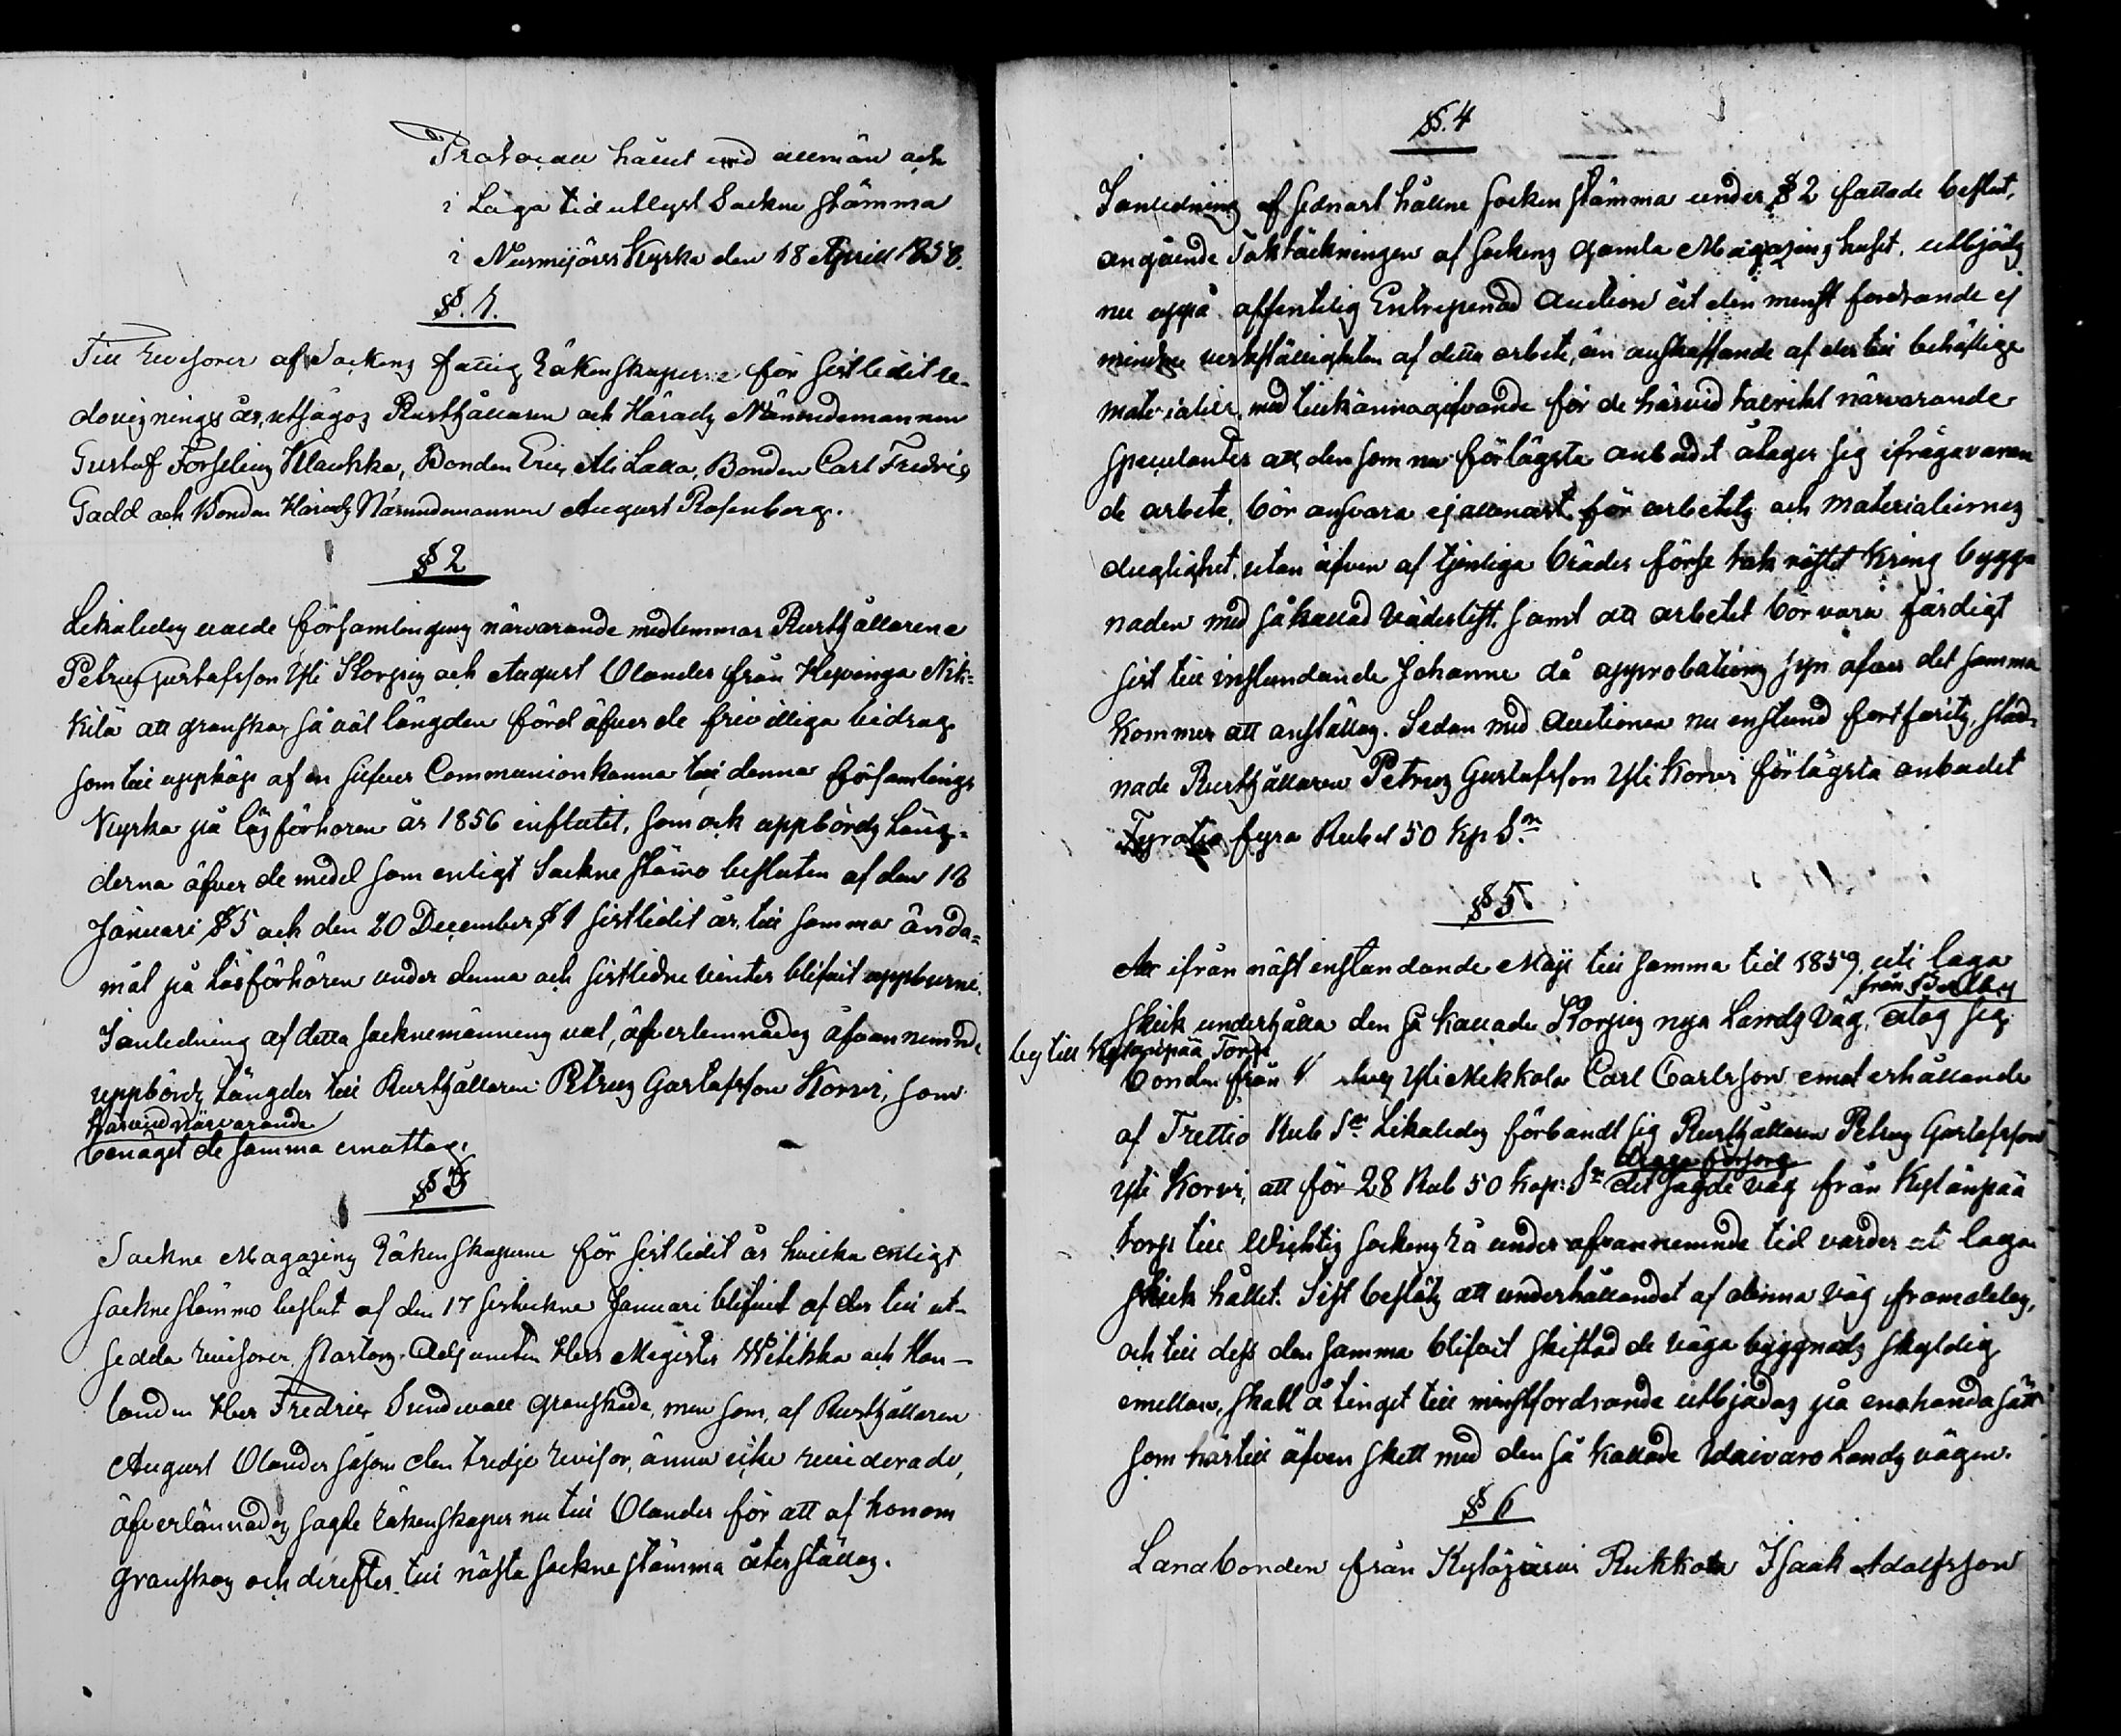 Protocoll hållit vid allmän och
i Laga tid utlyst Sockne stämma
i Nurmijärvi Kyrka den 18 Aprill 1858.
§. 1.
Till Revisorer af Sockens fattig Räkenskaperne för sistledit re-
dovisnings år, utsågos Rusthållaren och Härads Nämndemannen
Gustaf Forselius Klaukka, Bonden Eric Ali Lalla, Bonden Carl Fredric
Gadd och Bonden Härads Nämndemannen August Rosenberg.
§ 2
Likaledes valde församlingens närvarande medlemmar Rusthållarene
Petrus Gustafsson Yli Korpis och August Olander från Hepvinga Nik-
kilä att granska så väl längden förd öfver de frivilliga bidrag
som till uppköp af en silfver Communionkanna till denna församlings
Kyrka på läsförhören år 1856 influtit, som ock uppbörds Läng-
derna öfver de medel som enligt Sockne stämo besluten af den 18
Januari § 5 och den 20 December § 1 sistledit år, till samma ända-
mål på Läsförhören under denna och sistledne vinter blifvit uppburne.
I anledning af detta socknemännens val, öfverlemnades ofvannemnde
uppbörds Längder till Rusthållaren Petrus Gustafsson Korvi, som
härvid närvarande
benäget de samma emottog.
§ 3
Sockne Magazins Räkenskaperne för sistledit år hvilka enligt
socknestämmo beslut af den 17 sistlidne Januari blifvit af der till ut-
sedda revisorer Pastors Adjuncten Herr Magister Witikka och Han-
landen Herr Fredric Sundwall granskade, men som, af Rusthållaren
August Olander såsom den tredje revisor, ännu icke reviderade,
öfverlämnades sagde räkenskaper nu till Olander för att af honom
granskas och derefter till nästa sockne stämma återställas.
§. 4
I anledning af sednast hållne socken stämma under § 2 fattade beslut,
angående Taktäckningen af sockens gamla Magazins huset, utbjöds
nu uppå offentelig Entreprenad Auction åt den minst fordrande ej
mindre verkställigheten af detta arbete, än anskaffande af der till behöflige
materialier, med tillkännagifvande för de härvid talrikt närvarande
speculanter att, den som nu för lägsta anbudet åtager sig ifrågavaran
de arbete, bör ansvara ej allenast för arbetets och materialiernes
duglighet, utan äfven af tjenliga bräder förse tak röstet kring bygga
naden med så kallad väderlist, samt att arbetet bör vara färdigt
sist till instundande Johanne då approbations syn öfver det samma
kommer att anställas. Sedan med Auctionen nu en stund fortfarits, stad-
nade Rusthållaren Petrus Gustafsson Yli Korvi för lägsta anbudet
Fyratio fyra Rubel 50 Kp Sr
§ 5.
Att ifrån näst instundande Maji till samma tid 1859, uti laga
från Bollby
skick underhålla den så kallade Korpis nya Lands väg, åtog sig
by till Kylänpää Torp
Bonden från Yli Mekkola Carl Carlsson emot erhållande
af Trettio Rub Sr. Likaledes förbandt sig Rusthållaren Petrus Gustafsson
draga försorg
Yli Korvi, att för 28 Rub 50 Kop: Sr det sagde väg från Kylänpää
torp till Wichtis sockens rå under ofvannemnde tid varder i laga
skick hållet. Sist beslöts att underhållandet af denna väg framdeles,
och till dess den samma blifvit skiftad de väga byggnads skyldig
emellan, skall å tinget till minstfordrande utbjudas på enahanda sätt
som härtill äfven skett med den så kallade Waivaro Lands vägen.
§ 6
Landbonden från Kyläjärvi Rukkola Isaak Adolfsson